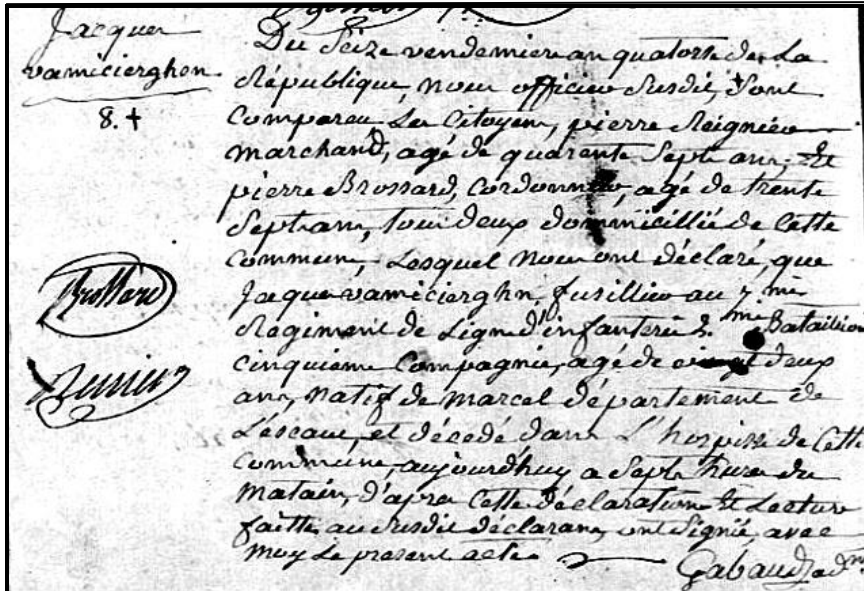 Jacques
vamicierghen
8. +
Du Seize vendemier an quatorse de La
République, nous officier Susdit, Sont
Comparu Les Citoyens, pierre Reignier
marchand, agé de quarante Sept ans, Et
pierre Brossard, Cordonnier, agé de trente
Sept ans, tous deux domnicillié de Cette
Commune, Lesquel nous ont déclaré, que
Jaque vamicierghn, fusillier au 7.me
Régiment de Ligne d'infanterie 2.me Bataillion
cinquieme Compagnie, agé de vingt deux
ans, natif de marcel département de
L'éscaut, et décedé dans L'hospisse de Cette
Commune, aujourd'huy a Sept heure du
matain, d'apres Cette déclaration Et Lecture
faitte, au Susdit déclarans, ont Signié, avec
moy Le present acte
Brossard
Gabaud adm